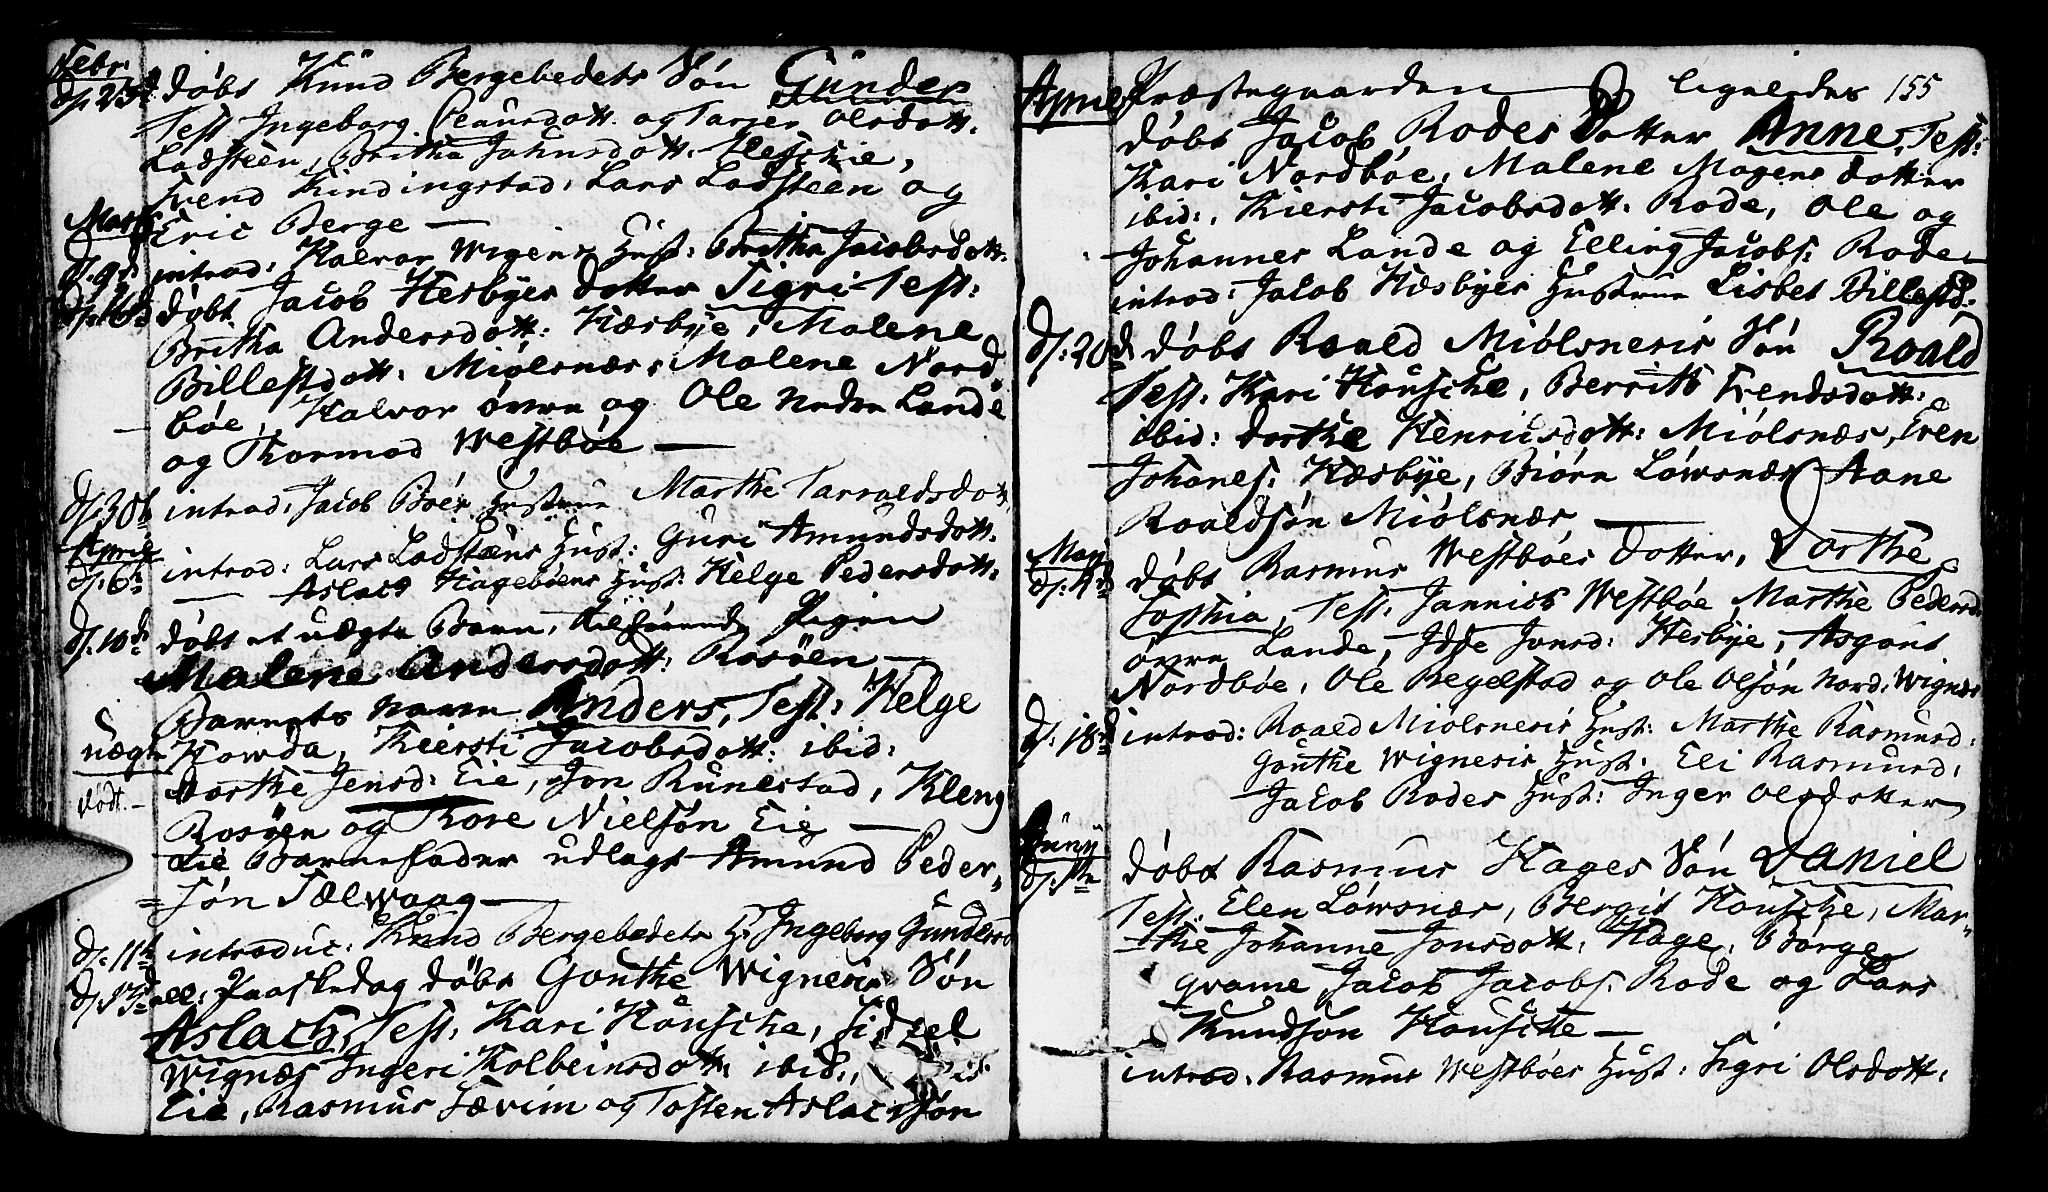 Febr
d. 23d døbt Knud Bergebedets Søn Gunder
Test. Ingeborg Claursdott. og Tarjer Olsdott.
Ladsteen, Britha Johnsdott. Fleschie,
Svend Kindingstad, Lars Ladsteen og
Eric Berge —
Marti
d. 9d introd: Halvor Wigens Hust: Britha Jacobsdott.
d. 16d døbt Jacob Hesbyes dotter Sigri Test:
Britha Andersdott: Hæsbye, Malene
Billestdott: Miölsnæs, Malene Nord
böe, Halvor övre og Ole Nedre Lande
og Thormod Westböe —
d. 30t introd: Jacob Böes Hustrue Marthe Tarraldsdott
Aprile
d. 6t introd: Lars Ladstæns Hust: Guri Amundsdott.
— Aslach Hageböens Hust: Helge Pedersdott:
d. 10de døbt et uægte Barn, tilhörende Pigen
Malene Andersdott: Rosöen —
Barnets navn Anders, Test: Helge
uægte Howda, Kiersti Jacobsdott: ibid:
födt. — Dorthe Jensd: Eie, Jon Runestad, Kleng
Rosöen og Thore Nielsön Eie —
til Barnefader udlagt Amund Peder-
sön Sælwaag —
d. 11t introduc: Knud Bergebedets H. Ingeborg Gundersd
d. 13d ell: Paaskedag döbt Gouthe Wignesis Sön
Aslach, Test: Kari Houschе, Sidzel
Wignæs Ingeri Kolbeinsdott: ibid:,
Eie, Rasmus Sævim og Tosten Aslachsön
Aprilis Præstegaarden ligeledes 155
döbt Jacob Rodes Dotter Anne, Test:
Kari Nordböe, Malene Mogens dotter
ibid:, Kiersti Jacobsdott: Rode, Ole og
Johannes Lande og Elling Jacobs: Rode
introd: Jacob Hæsbyes Hustrue Lisbet Billestd:
d. 20d döbt Roald Miölsnesis Sön Roald
Test: Kari Housche, Berrith Svendsdott:
ibid: Dorthe Henricsdott: Miölsnæs, Even
Johanes: Hæsbye, Biörn Löwsnæs Aane
Roaldsön Miölsnæs —
Maji
d. 4d döbt Rasmus Westböes Dotter, Dorthe
Sophia, Test: Jannich Westböe Marthe Pedersd
övre Lande, Idse Jonsd: Hesbye, Asgout
Nordböe, Ole Regelstad og Ole Olsön Nord: Wignes
d. 18d introd: Roald Miölsnesis Hust: Marthe Rasmusd:
Gouthe Wignesis Hust: Eli Rasmusd:
Jacob Rodes Hust: Inger Olsdotter
Junij
d. 1te döbt Rasmus Hages Sön Daniel
Test: Elen Löwsnæs, Bergit Housche, Mar-
the Johanne Jonsdott: Hage, Börge
qvame Jacob Jacobs: Rode og Lars
Knudsön Housche —
introd. Rasmus Westböes Hust: Sigri Olsdott: